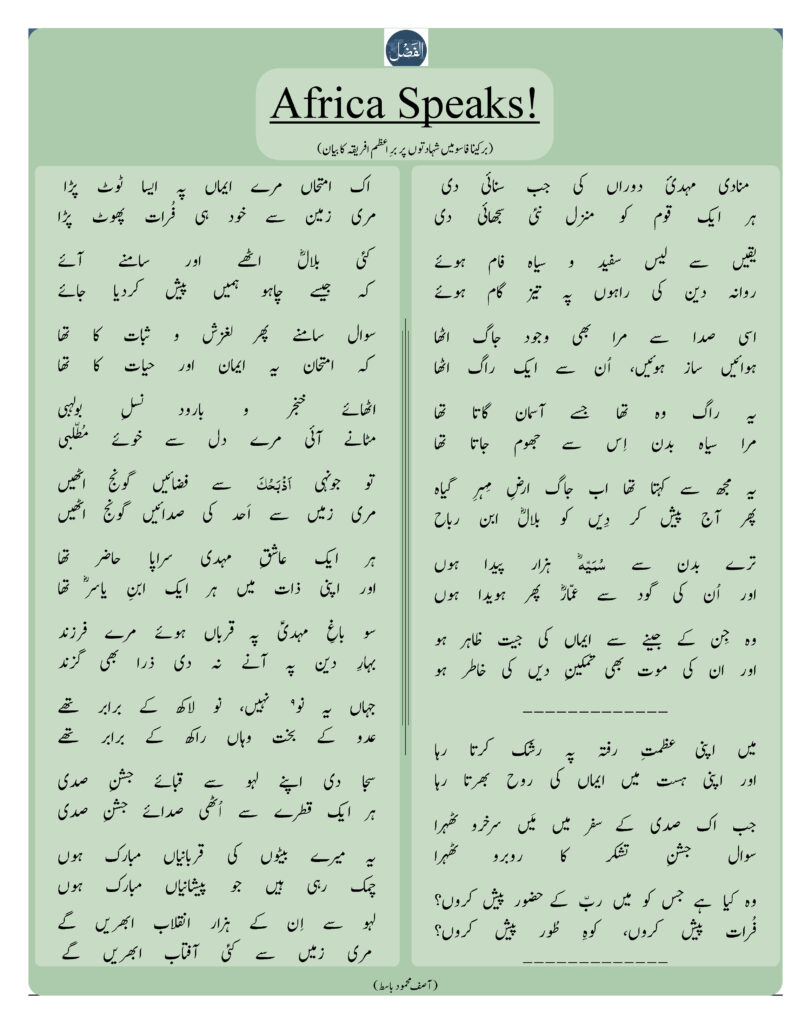 الفضل
Africa Speaks!
(برکینا فاسو میں شہادتوں پر براعظم افریقہ کا بیان)
منادی مہدئ دوراں کی جب سنائی دی
ہر ایک قوم کو منزل نئی سجھائی دی
یقیں سے لیس سفید و سیاہ فام ہوئے
روانہ دین کی راہوں پہ تیز گام ہوئے
اسی صدا سے مرا بھی وجود جاگ اٹھا
ہوائیں ساز ہوئیں، اُن سے ایک راگ اٹھا
یہ راگ وہ تھا جسے آسمان گاتا تھا
مرا سیاہ بدن اِس سے جھوم جاتا تھا
یہ مجھ سے کہتا تھا اب جاگ ارضِ مِہرِ گیاہ
پھر آج پیش کر دِیں کو بلالؓ ابن رباح
ترے بدن سے سُمَیّہؓ ہزار پیدا ہوں
اور اُن کی گود سے عمّارؓ پھر ہویدا ہوں
وہ جِن کے جینے سے ایماں کی جیت ظاہر ہو
اور ان کی موت بھی تمکینِ دیں کی خاطر ہو
_____________
میں اپنی عظمتِ رفتہ پہ رشک کرتا رہا
اور اپنی ہست میں ایماں کی روح بھرتا رہا
جب اک صدی کے سفر میں مَیں سرخرو ٹھہرا
سوال جشنِ تشکر کا روبرو ٹھہرا
وہ کیا ہے جس کو میں ربّ کے حضور پیش کروں؟
فُرات پیش کروں، کوہِ طُور پیش کروں؟
_____________
اک امتحاں مرے ایماں پہ ایسا ٹوٹ پڑا
مری زمین سے خود ہی فُرات پھوٹ پڑا
کئی بلالؓ اٹھے اور سامنے آئے
کہ جیسے چاہو ہمیں پیش کردیا جائے
سوال سامنے پھر لغزش و ثبات کا تھا
کہ امتحان یہ ایمان اور حیات کا تھا
اٹھائے خنجر و بارود نسلِ بولہبی
مٹانے آئی مرے دل سے خوئے مُطّلبی
تو جونہی اَذْبَحُکَ سے فضائیں گونج اٹھیں
مری زمیں سے اَحد کی صدائیں گونج اٹھیں
ہر ایک عاشقِ مہدی سراپا حاضر تھا
اور اپنی ذات میں ہر ایک ابنِ یاسرؓ تھا
سو باغِ مہدیؑ پہ قرباں ہوئے مرے فرزند
بہارِ دین پہ آنے نہ دی ذرا بھی گزند
جہاں یہ نو۹ نہیں، نو لاکھ کے برابر تھے
عدو کے بخت وہاں راکھ کے برابر تھے
سجا دی اپنے لہو سے قبائے جشنِ صدی
ہر ایک قطرے سے اُٹھی صدائے جشنِ صدی
یہ میرے بیٹوں کی قربانیاں مبارک ہوں
چمک رہی ہیں جو پیشانیاں مبارک ہوں
لہو سے اِن کے ہزار انقلاب ابھریں گے
مری زمیں سے کئی آفتاب ابھریں گے
(آصف محمود باسط)